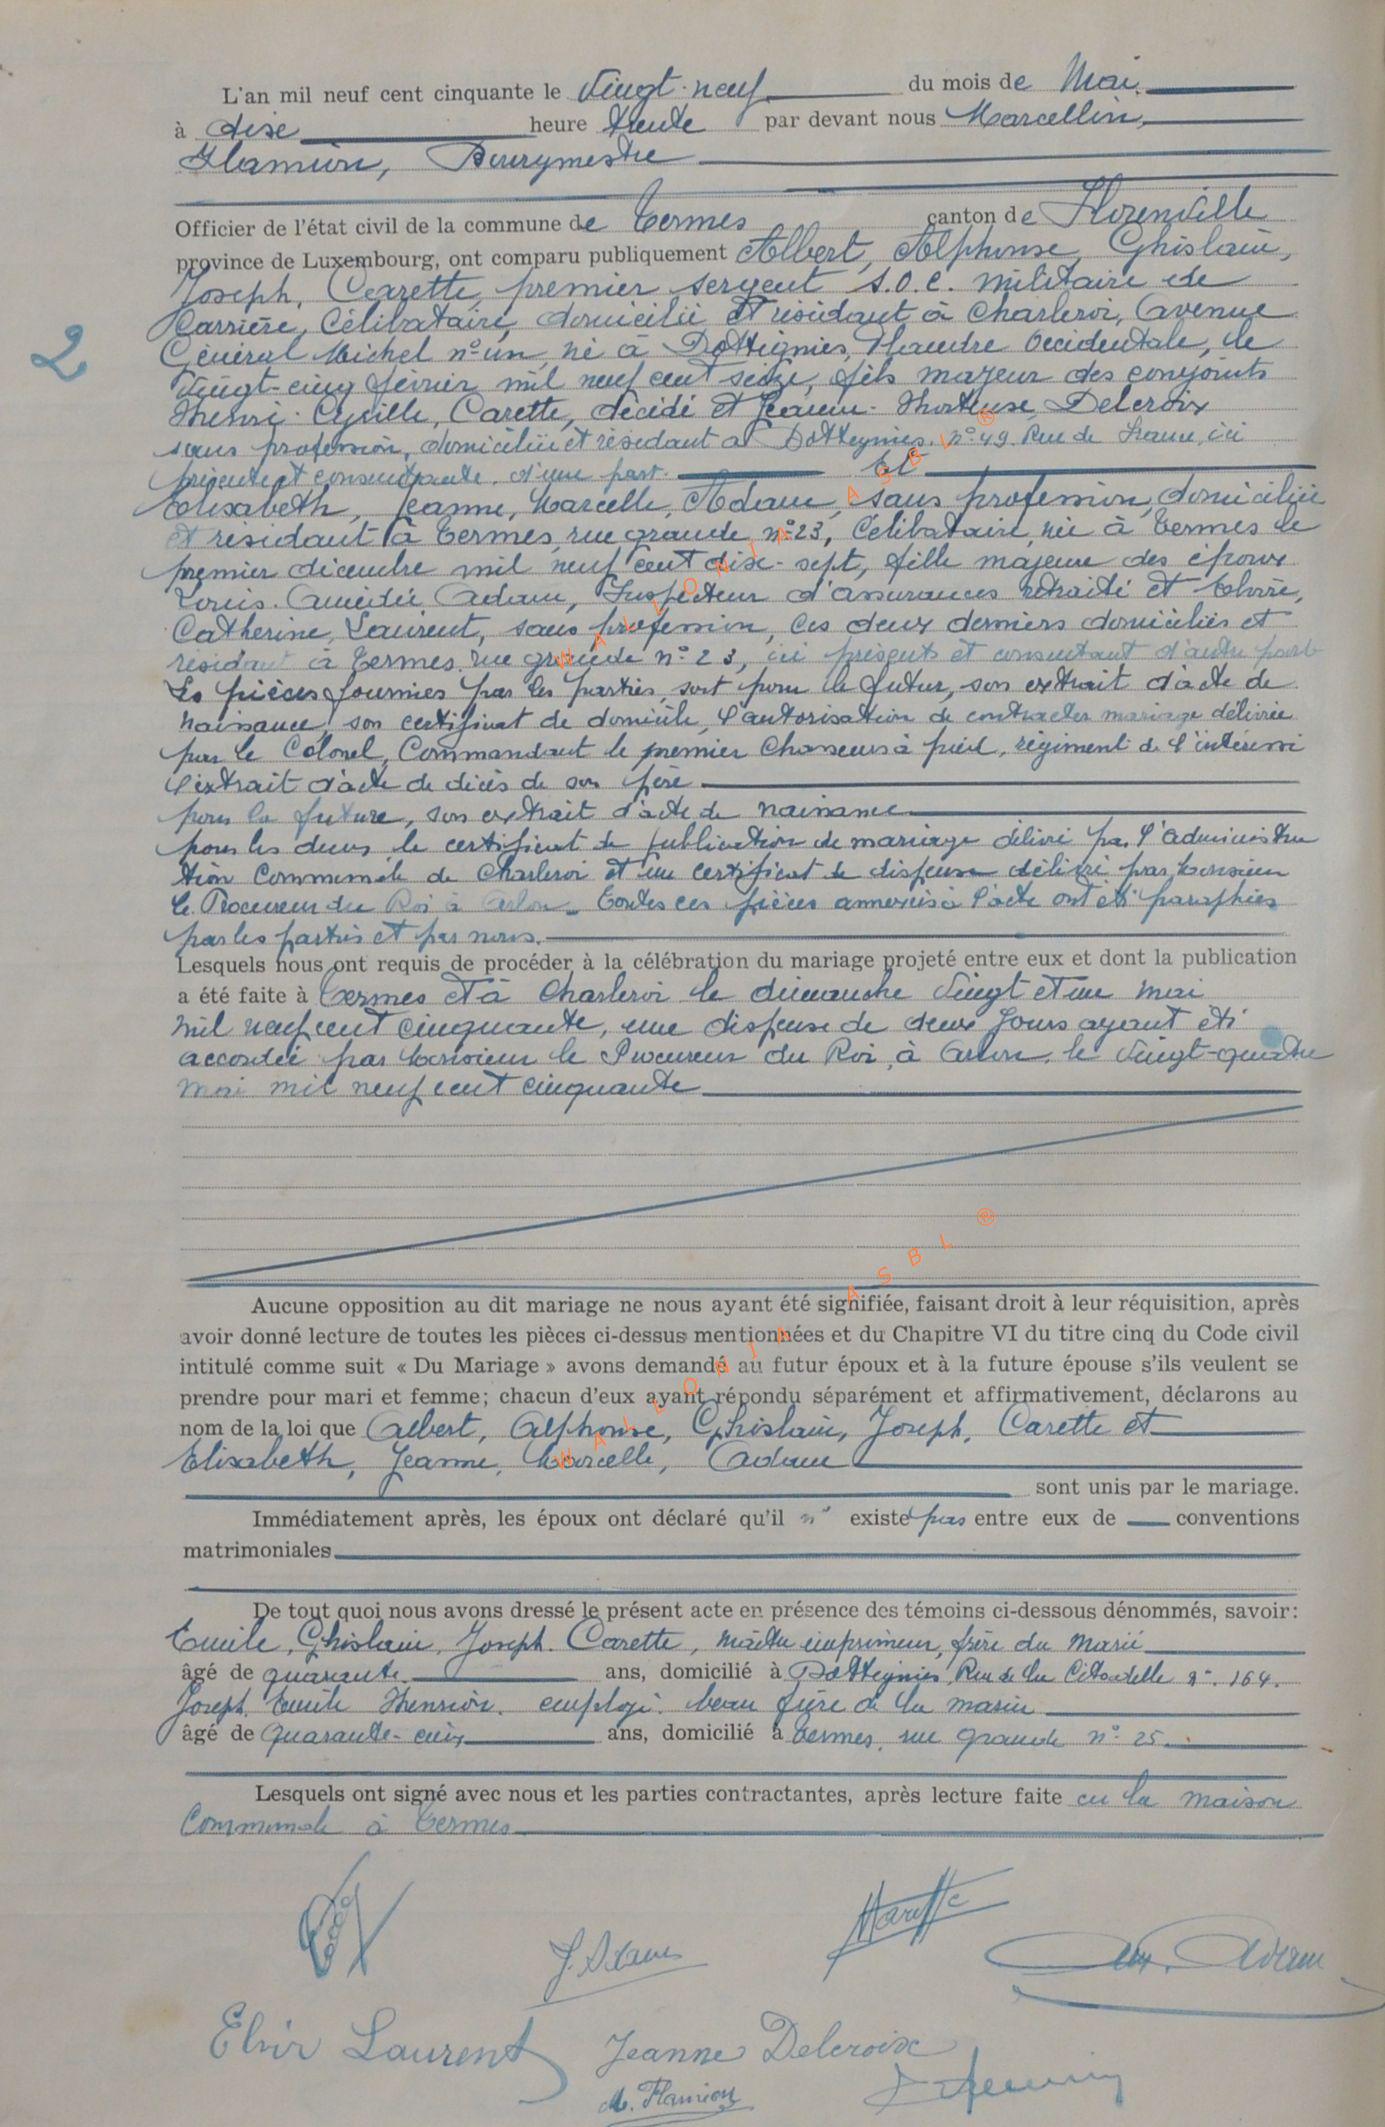 L'an mil neuf cent cinquante le vingt-neuf du mois de Mai
à dixe heure trente par devant nous Marcellin,
Flamion, Bourgmestre
Officier de l'état civil de la commune de Termes canton de Florenville
province de Luxembourg, ont comparu publiquement Albert, Alphonse, Ghislain,
Joseph, Carette, premier sergent S.O.C. militaire de
Carrière, Célibataire, domicilié et résidant à Charleroi, Avenue
2
Général Michel n° un, né à Dottignies, Flandre Occidentale, le
vingt-cinq février mil neuf cent seize, fils majeur des conjoints
Henri-Cyrille, Carette, décédé et Jeanne-Hortense, Delcroix
sans profession, domiciliée et résidant à Dottignies, n° 49 Rue de , ici
présente et consentante, d'une part. Et
Elisabeth, Jeanne, Marcelle, Adam, sans profession, domiciliée
et résidant à Termes, rue grande, n° 23, Célibataire, née à Termes le
premier décembre mil neuf cent dix-sept, fille majeure des époux
Louis-Amédée, Adam, Inspecteur d'assurances retraité et Elvire,
Catherine, Laurent, sans profession, ces deux derniers domiciliés et
résidant à Termes, rue grande n° 23, ici présents et consentant d'autre part
Les pièces fournies par les parties, sont pour le futur, son extrait d'acte de
naissance, son certificat de domicile, l'autorisation de contracter mariage délivrée
par le Colonel, Commandant le premier Chasseurs à pied, régiment de l'intéressé
l'extrait d'acte de décès de son père
pour la future, son extrait d'acte de naissance
pour les deux, le certificat de publication de mariage délivré par l'administra
tion Communale de Charleroi et un certificat de dispense délivré par Monsieur
le Procureur du Roi à Arlon. Toutes ces pièces annexées à l'acte ont été paraphées
par les parties et par nous.
Lesquels nous ont requis de procéder à la célébration du mariage projeté entre eux et dont la publication
a été faite à Termes et à Charleroi le dimanche vingt et un mai
mil neuf cent cinquante, une dispense de deux jours ayant été
accordée par Monsieur le Procureur du Roi, à Arlon, le vingt-quatre
mai mil neuf cent cinquante
Aucune opposition au dit mariage ne nous ayant été signifiée, faisant droit à leur réquisition, après
avoir donné lecture de toutes les pièces ci-dessus mentionnées et du Chapitre VI du titre cinq du Code civil
intitulé comme suit « Du Mariage » avons demandé au futur époux et à la future épouse s'ils veulent se
prendre pour mari et femme; chacun d'eux ayant répondu séparément et affirmativement, déclarons au
nom de la loi que Albert, Alphonse, Ghislain, Joseph, Carette et
Elisabeth, Jeanne, Marcelle, Adam
sont unis par le mariage.
Immédiatement après, les époux ont déclaré qu'il n' existe pas entre eux de conventions
matrimoniales
De tout quoi nous avons dressé le présent acte en présence des témoins ci-dessous dénommés, savoir:
Emile, Ghislain, Joseph, Carette, maître imprimeur, frère du marié
âgé de quarante ans, domicilié à Dottignies, Rue de la Citadelle n° 164.
Joseph Emile Henrion, employé, beau frère de la mariée
âgé de quarante-cinq ans, domicilié à Termes, rue grande n° 25
Lesquels ont signé avec nous et les parties contractantes, après lecture faite en la maison
Communale à Termes
J. Adam
Adam
Elvir Laurent
Jeanne Delcroix
M. Flamion
WALLONIA ASBL ®
WALLONIA ASBL ®